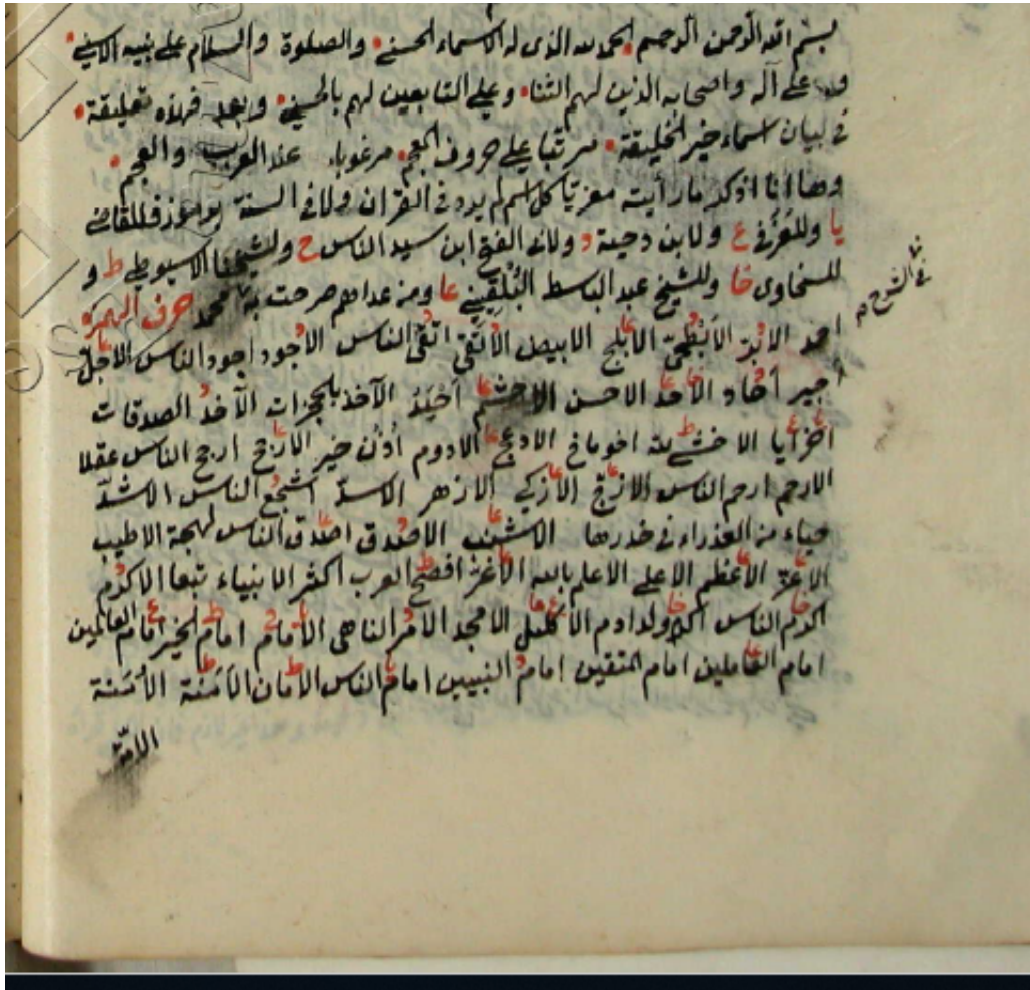 بسم الله الرحمن الرحيم الحمد لله الذى له الاسماء الحسنى والصلوة والسلام على نبيه الاسنى
وعلى آله واصحابه الذين لهم الثناء وعلى التابعين لهم بالحسنى وبعد فهذه تعليقة
فى لبيان اسماء خير الخليقة مرتبا على حروف المعجم مرغوبا عند العرب والعجم
وها انا اذكر ما رأيته معزيا كل اسم لم يرد فى القران ولا فى السنة فللقاضى
يا وللعزفى ع ولابن دحية د ولابى الفتح ابن سيد الناس ح ولشيخنا الاسيوطى ط و
للسخاوى خا وللشيخ عبد الباسط البلقينى عا ومن عداهم صرحت به محمد حرف الهمزة
احمد الابر الابطحى الابلج الابيض الاتقى اتقى الناس الاجود اجود الناس الاجل
جير احاد الاحد الاحسن الاحشم احيد الآخذ بالحجزات الآخذ الصدقات
اخرايا الاخشى لله اخوماخ الادعج الادوم اذن خير الارجح ارجح الناس عقلا
الارحم ارحم الناس الازج الازكى الازهر الاسد اشجع الناس الاشد
حياء من العذراء فى خدرها الاشنب الاصدق اصدق الناس لهجة الاطيب
الاعز الاعظم الاعلى الاعلم بالله الاغر افصح العرب اكثر الانبياء تبعا الاكرم
اكرم الناس اكرم ولد ادم الاكليل الامجد الآمر الناهى الامام امام الخير امام العالمين
امام العاملين امام المتقين امام النبيين امام الناس الامان الامنة الامنة
فى الشرح